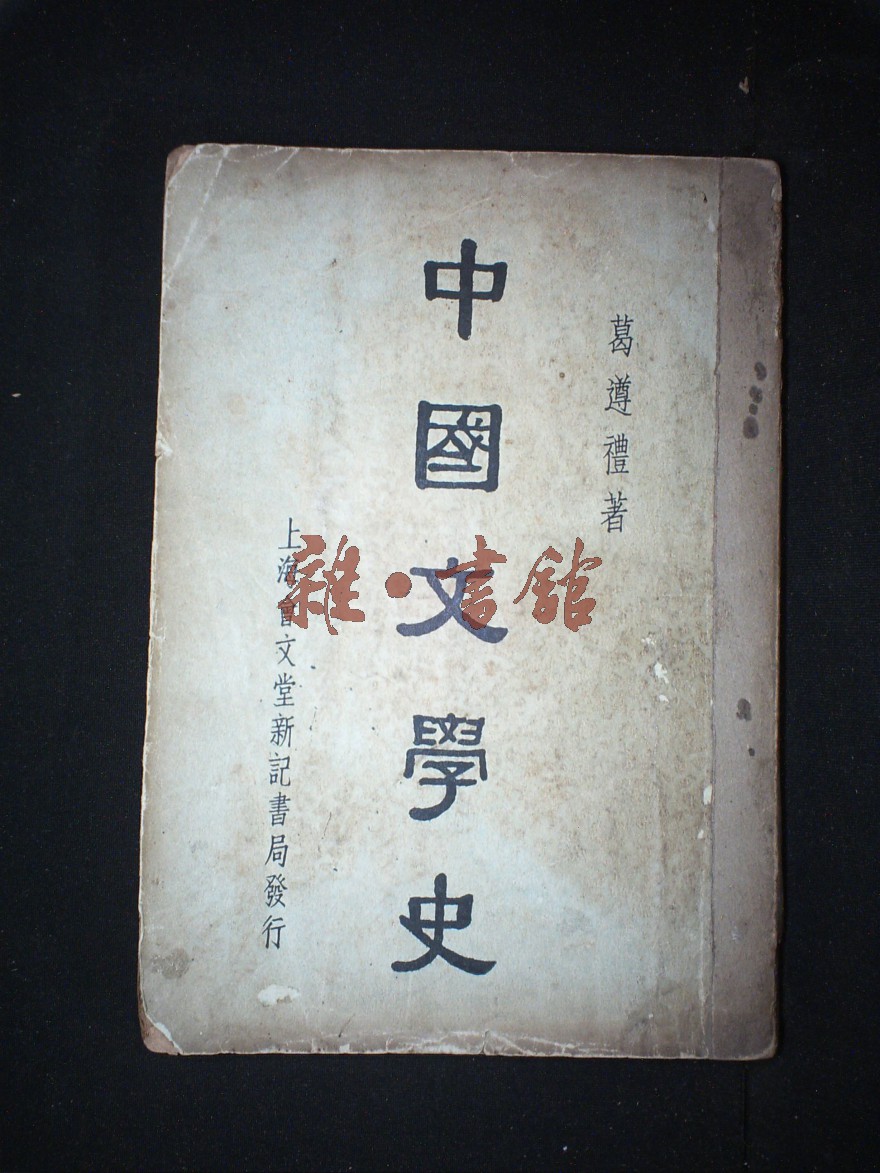 葛遵禮著
中國文學史
上海會文堂新記書局發行
雜·書館